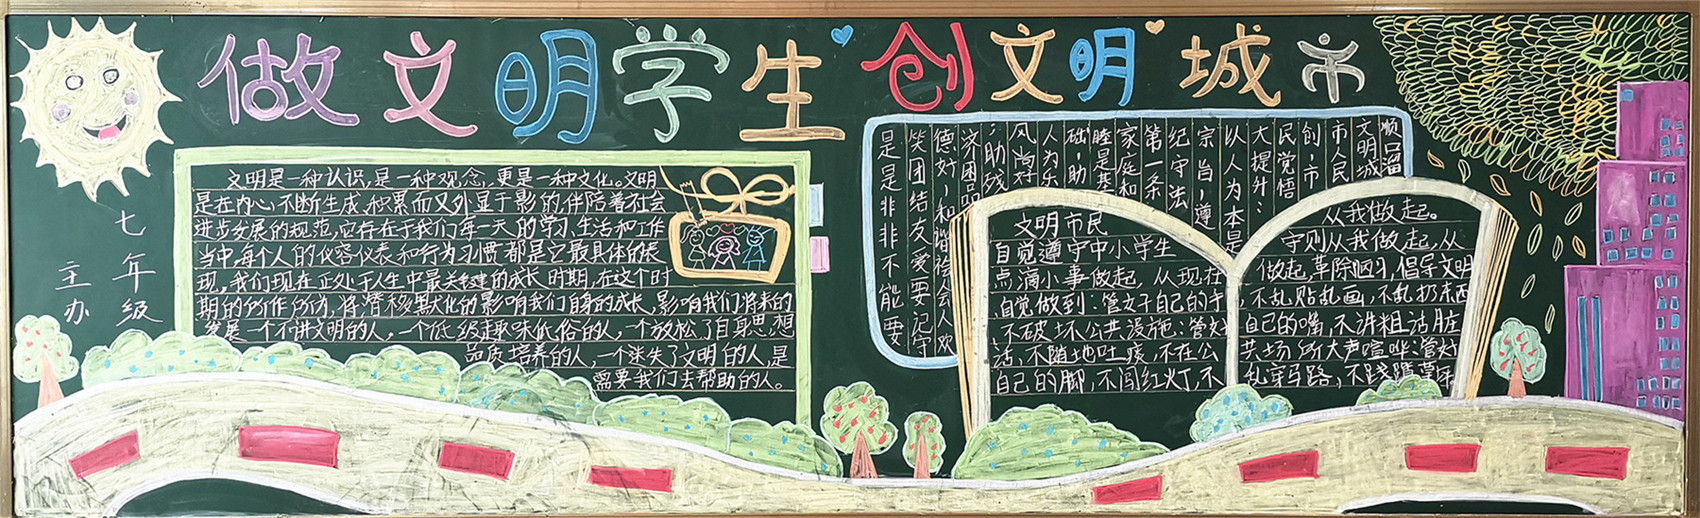 做文明学生 创文明城市
七年级
主办
文明是一种认识,是一种观念,更是一种文化。文明
是在内心,不断生成、积累而又外显于影的,伴陪着社会
进步发展的规范,它存在于我们每一天的学习、生活和工作
当中,每个人的仪容仪表和行为习惯都是它最具体的表
现,我们现在正处于人生中最关键的成长时期,在这个时
期的所作所为,将潜移默化的影响我们自身的成长,影响我们将来的
发展,一个不讲文明的人,一个低级趣味低俗的人,一个放松了自身思想
品质培养的人,一个迷失了文明的人,是
需要我们去帮助的人。
顺口溜
文明城
市人民
创,市
民觉悟
大提升:
以人为本是
宗旨,遵
纪守法
第一条
家庭和
睦是基
础,助
人为乐
风尚好
,助残
济困品
德好,和谐社会人欢
笑团结友爱要记守
是是非非不能要
文明市民
自觉遵守中小学生
点滴小事做起,从现在
自觉做到:管立自己的手
不破坏公共设施:管好
洁,不随地吐痰,不在公
自己的脚,不闯红灯,不
从我做起。
守则从我做起,从
做起,革除陋习,倡导文明
,不乱贴乱画,不乱扔东西
自己的嘴,不讲粗话脏
共场所大声喧哗:管好
乱穿马路,不践踏草坪